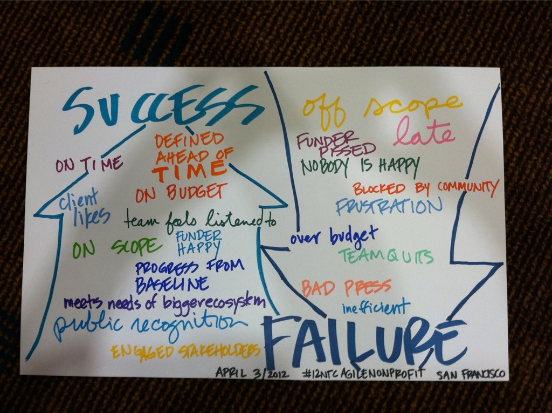 SUCCESS
DEFINED
AHEAD OF
TIME
ON TIME
ON BUDGET
client
likes
team feels listened to
ON SCOPE
FUNDER
HAPPY
PROGRESS FROM
BASELINE
meets needs of bigger ecosystem
public recognition
ENGAGED STAKEHOLDERS
off scope
late
FUNDER
PISSED
NOBODY IS HAPPY
BLOCKED BY COMMUNITY
FRUSTRATION
over budget
TEAM QUITS
BAD PRESS
inefficient
FAILURE
APRIL 3/2012 #12NTCAGILENONPROFIT SAN FRANCISCO